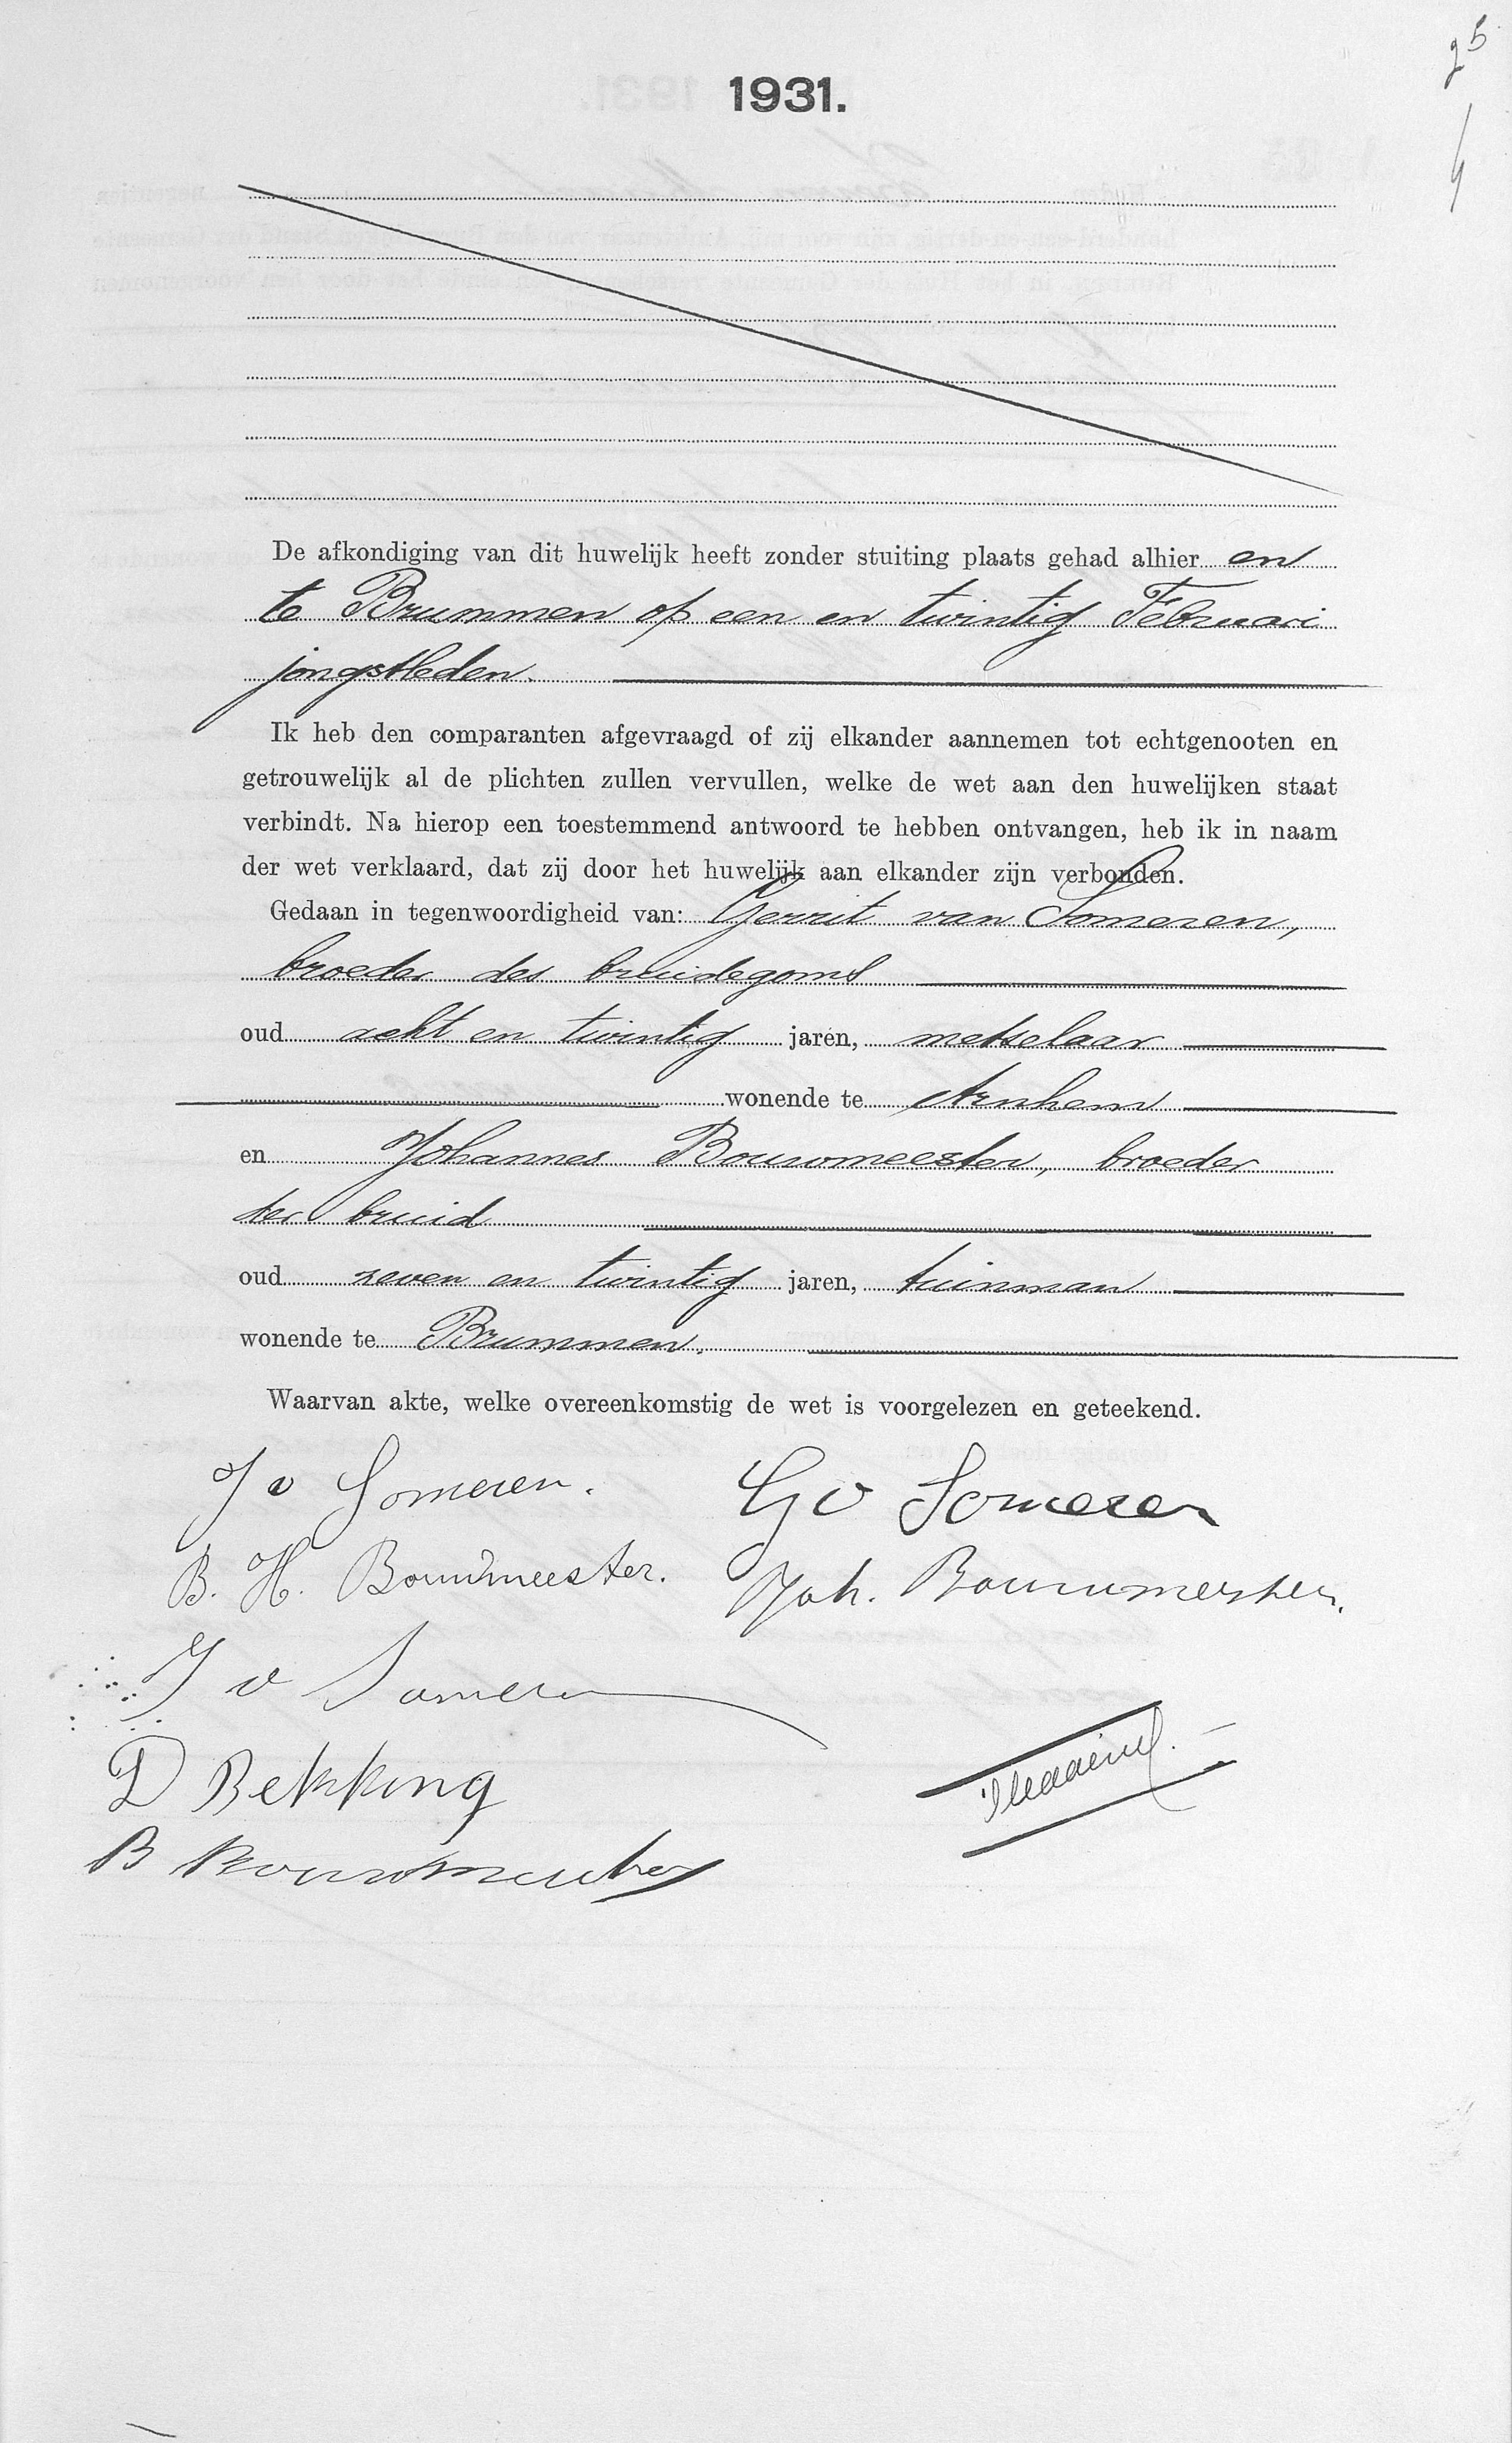 25
1931.
De afkondiging van dit huwelijk heeft zonder stuiting plaats gehad alhier en
te Brummen op een en twintig Februari
jongstleden.
Ik heb den comparanten afgevraagd of zij elkander aannemen tot echtgenooten en
getrouwelijk al de plichten zullen vervullen, welke de wet aan den huwelijken staat
verbindt. Na hierop een toestemmend antwoord te hebben ontvangen, heb ik in naam
der wet verklaard, dat zij door het huwelijk aan elkander zijn verbonden.
Gedaan in tegenwoordigheid van: Gerrit van Someren,
broeder des bruidegoms
oud acht en twintig jaren, metselaar
wonende te Arnhem
en Johannes Bouwmeester, broeder
der bruid
oud zeven en twintig jaren, tuinman
wonende te Brummen.
Waarvan akte, welke overeenkomstig de wet is voorgelezen en geteekend.
J v Someren. G v Someren
B. H. Bouwmeester. Joh. Bouwmeester.
J v Someren
D Bekking
B Bouwmeester